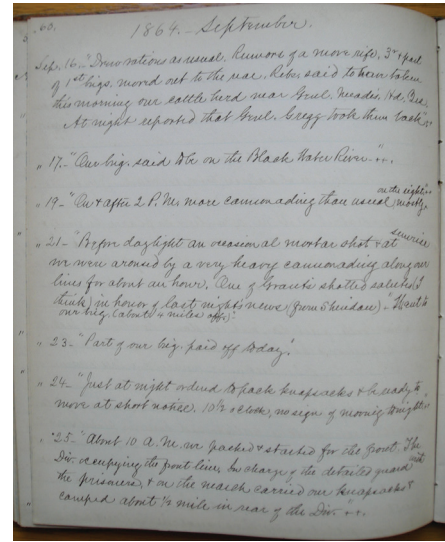 63.
1864. - September.
Sep. 16 - "Drew rations as usual. Rumors of a move rife. 3rd & part
of 1st brigs. moved out to the rear. Rebs said to have taken
this morning our cattle herd near Genl. Meade's Hd. Qrs.
At night reported that Genl. Gregg took them back".
" 17. - "Our brig. said to be on the Black Water River" - "
" 19 - "On & after 2 P.M. more cannonading than usual, mostly
on the right" -
" 21 - "Before daylight an occasional mortar shot & at sunrise
we were aroused by a very heavy cannonading along our
lines for about an hour. One of Grant's shotted salutes (I
think) in honor of last night's news (from Sheridan)". "Went to
our brig. (about 4 miles off)".
" 23 - "Part of our brig. paid off today".
" 24 - "Just at night ordered to pack knapsacks & be ready to
move at short notice. 10½ o'clock, no sign of moving tonight".
" 25 - "About 10 A.M. we packed & started for the front. The
Div. occupying the front lines. In charge of the detailed guard with
the prisoners, & on the march carried our knapsacks &
camped about ½ mile in rear of the Div." -